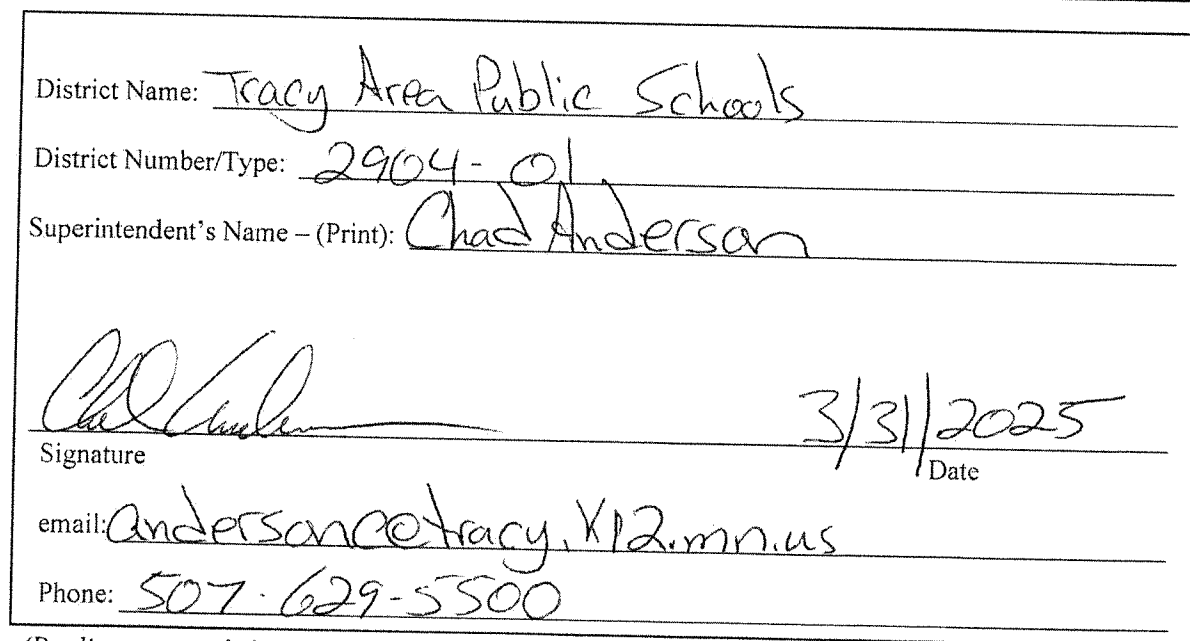 District Name: Tracy Area Public Schools
District Number/Type: 2904-01
Superintendent's Name – (Print): Chad Anderson
Chad Anderson 3/31/2025
Signature Date
email: andersonc@tracy.k12.mn.us
Phone: 507-629-5500